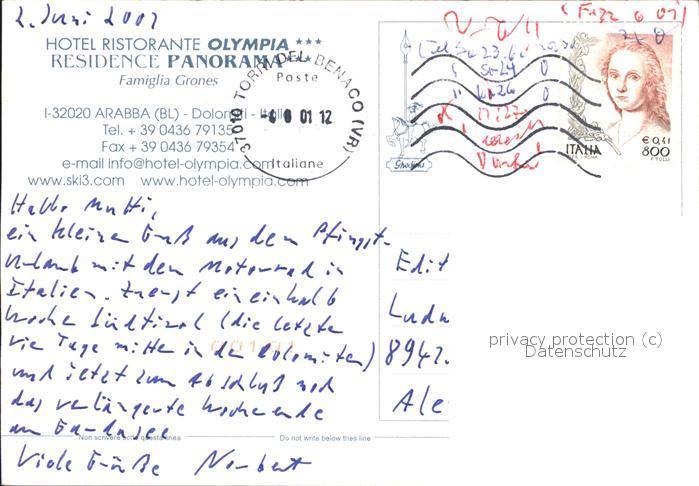 2. Juni 2001
HOTEL RISTORANTE OLYMPIA ★★★
RESIDENCE PANORAMA
Famiglia Grones
I-32020 ARABBA (BL) - Dolomiti - Italia
Tel. + 39 0436 79135
Fax + 39 0436 79354
e-mail info@hotel-olympia.com
www.ski3.com www.hotel-olympia.com
37010 TORRI DEL BENACO (VR)
Poste
6 01 12
Italiane
ITALIA
€ 0,41
800
Hallo Mutti,
ein kleiner Gruß aus dem Pfingst-
Urlaub mit dem Motorrad in
Italien. Zuerst ein einhalb
Woche Südtirol (die letzte
vier Tage mitte in den Dolomiten)
und jetzt zum Abschluß noch
das verlängerte Wochenende
am Gardasee
Viele Grüße Norbert
Non scrivere sotto questa linea
Do not write below this line
Edit
Ludw
8942
Ale
privacy protection (c)
Datenschutz